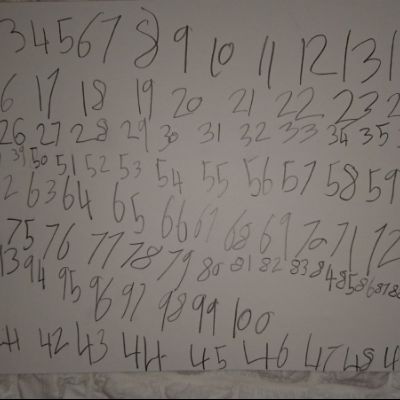 3 4 5 6 7 8 9 10 11 12 13 1
6 17 18 19 20 21 22 23 2
26 27 28 29 30 31 32 33 34 35 3
39 50 51 52 53 54 55 56 57 58 59
2 63 64 65 66 67 68 69 70 71 72
75 76 77 78 79 80 81 82 83 84 85 86 87 88
93 94 95 96 97 98 99 100
41 42 43 44 45 46 47 48 4